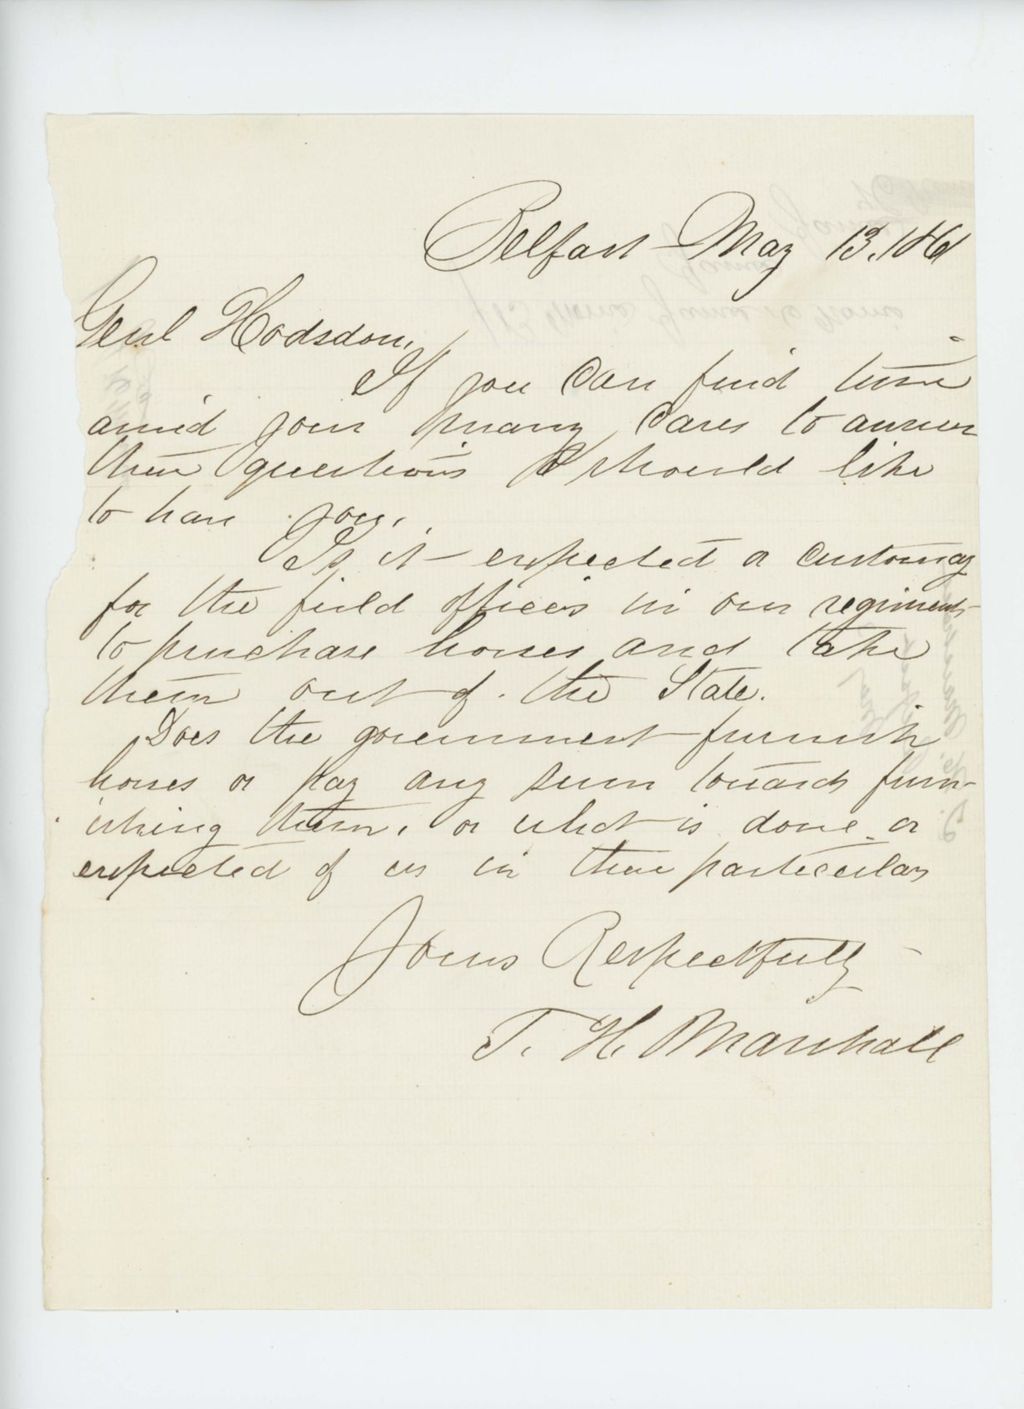 Belfast May 13. 1861
Genl Hodsdon,
If you can find time
amid your many cares to answer
these questions I should like
to have you.
Is it expected or customary
for the field officers in our regiments
to purchase horses and take
them out of the State.
Does the government furnish
horses or pay any sum towards furn-
ishing them, or what is done or
expected of us in these particulars
Yours Respectfully
T. H. Marshall